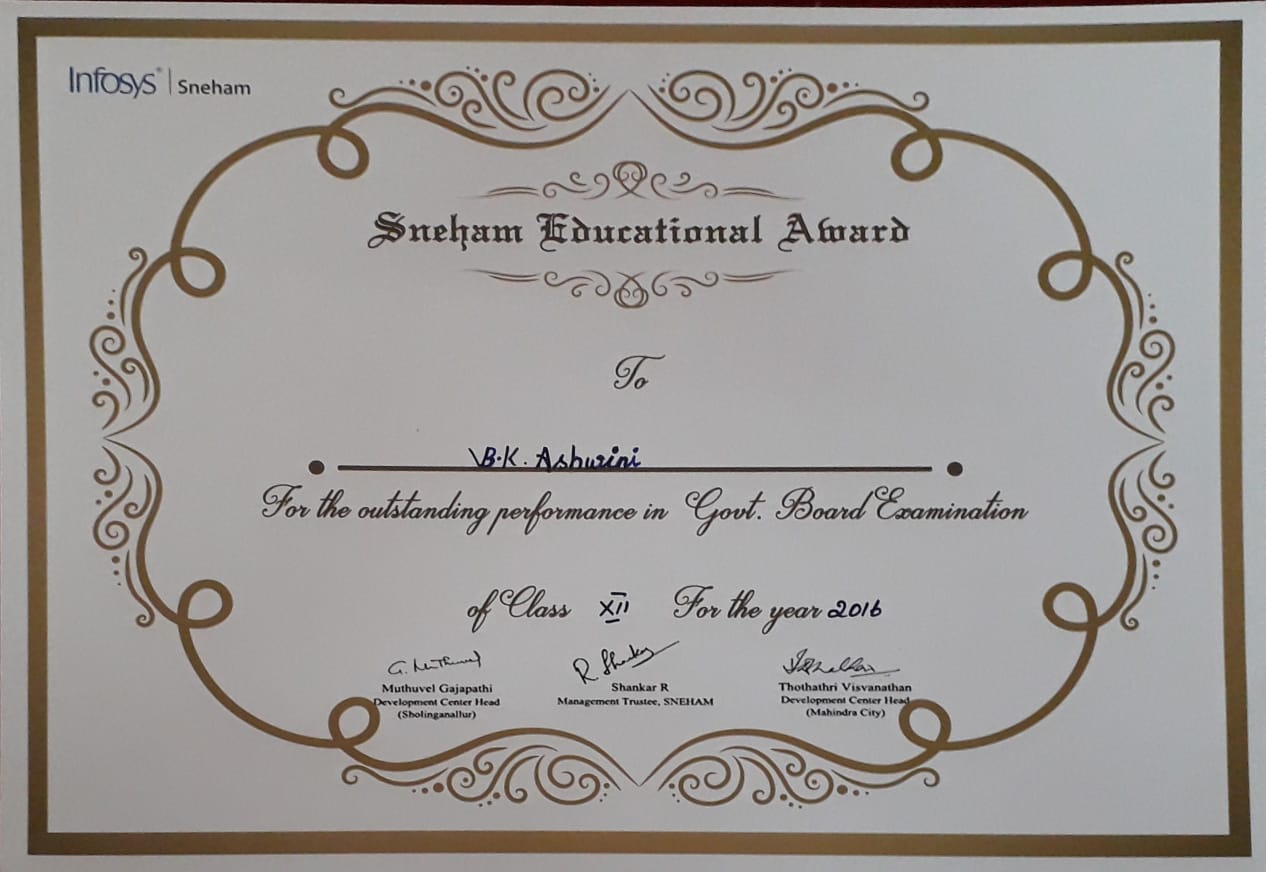 Infosys® | Sneham
Sneham Educational Award
To
B.K. Ashwini
For the outstanding performance in Govt. Board Examination
of Class XII For the year 2016
G. Muthuvel
R Shankar
Muthuvel Gajapathi
Development Center Head
(Sholinganallur)
Shankar R
Management Trustee, SNEHAM
Thothathri Visvanathan
Development Center Head
(Mahindra City)